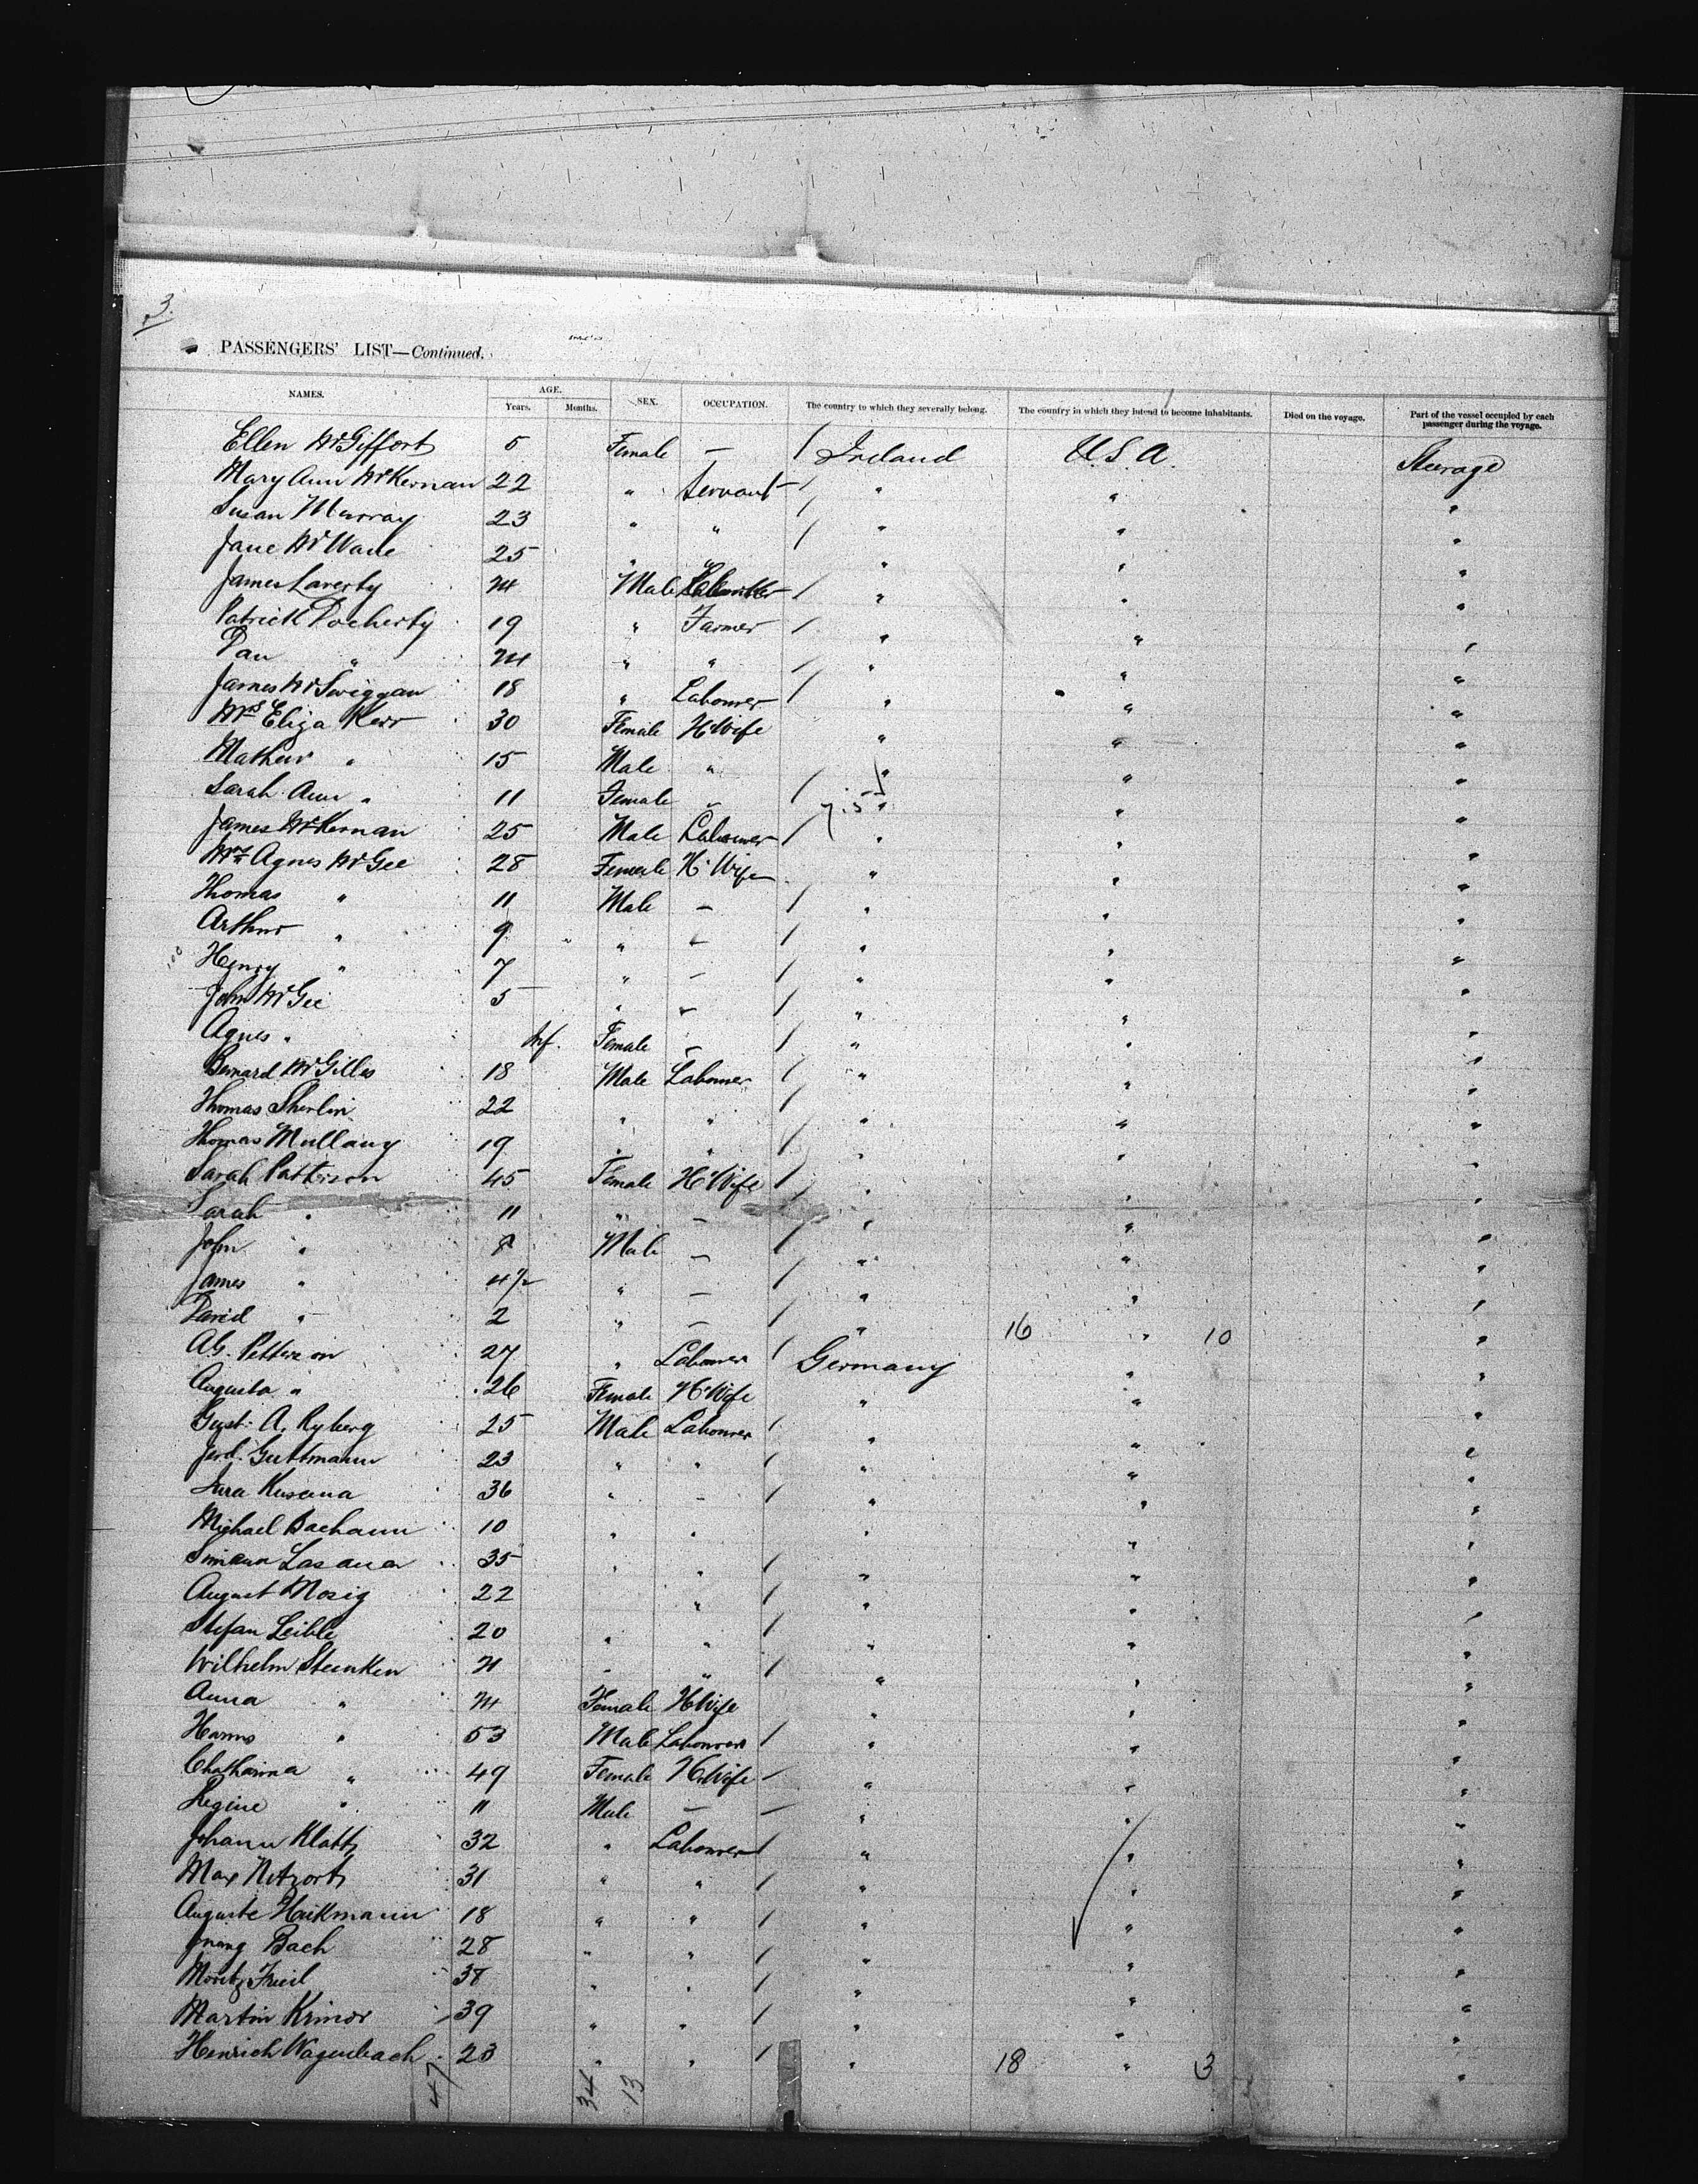 3.
PASSENGERS' LIST—Continued.
NAMES. AGE. Years. Months. SEX. OCCUPATION. The country to which they severally belong. The country in which they intend to become inhabitants. Died on the voyage. Part of the vessel occupied by each passenger during the voyage.
Ellen McGiffort 5 Female — / Ireland U.S.A. Steerage
Mary Ann McKernan 22 " Servant / " " "
Susan Murray 23 " " / " " "
Jane McWade 25 " " " " "
James Laverty 24 Male / " " "
Patrick Docherty 19 " Farmer / " " "
Dan " 24 " " / " " "
James McSwiggan 18 " Labourer / " " "
Mrs Eliza Kerr 30 Female H Wife " " "
Mathew " 15 Male " / " " "
Sarah Ann " 11 Female " " " "
James McKernan 25 Male Labourer / " " "
Mrs Agnes McGee 28 Female H Wife " " "
Thomas " 11 Male — / " " "
Arthur " 9 " — / " " "
Henry " 7 " — / " " "
John McGee 5 " — / " " "
Agnes " Inf. Female — / " " "
Bernard McGilles 18 Male Labourer / " " "
Thomas Sherlin 22 " " / " " "
Thomas Mullany 19 " " / " " "
Sarah Patterson 45 Female H Wife / " " "
Sarah " 11 " — / " " "
John " 8 Male — / " " "
James " 4½ " — / " " "
David " 2 " — / " 16 " 10 "
A.G. Petterson 27 " Labourer / Germany " "
Augusta " 26 Female H Wife " " "
Gust. A. Ryberg 25 Male Labourer / " " "
Ferd. Guttmann 23 " " / " " "
Kusana 36 " " / " " "
Michael Bachann 10 " " " " "
Simaun Lasana 35 " " / " " "
August Mosig 22 " / " " "
Stefan Leible 20 " " / " " "
Wilhelm Steenken 21 " " / " " "
Anna " 24 Female H Wife " " "
Harms " 53 Male Labourer / " " "
Chatharina " 49 Female H Wife / " " "
Regine " 11 Male — — " " "
Johann Klatt 32 " Labourer / " " "
Max Nitzort 31 " " / " " "
Auguste Haikmann 18 " " / " " "
Bach 28 " " / " " "
Moritz Fried 38 " " / " " "
Martin Krimor 39 " " / " " "
Heinrich Wagenbach 23 " " / " 18 " 3 "
47 34 13